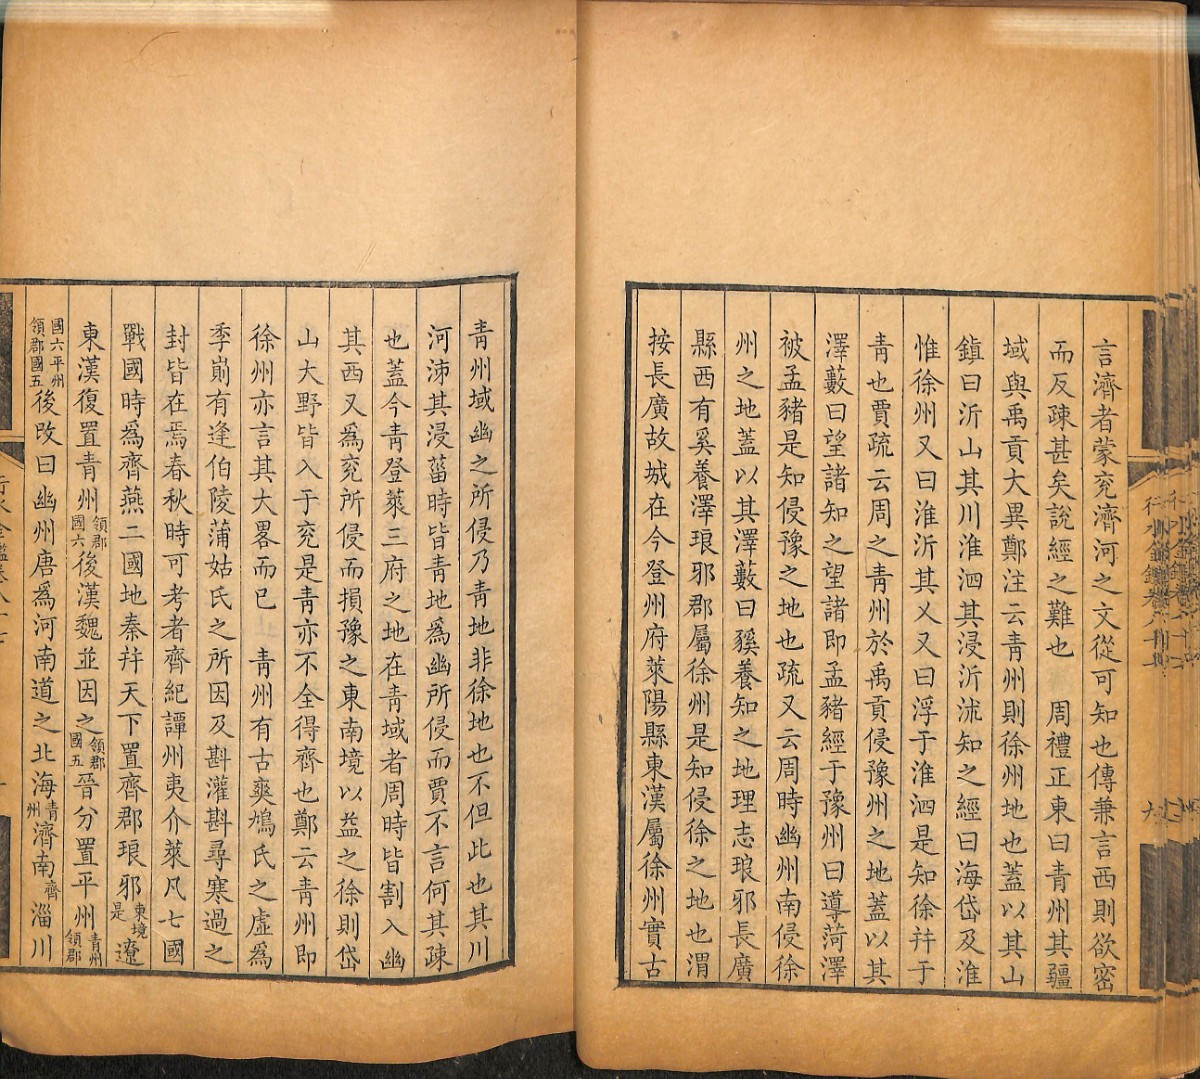 言濟者蒙兖濟河之文從可知也傳兼言西則欲密
而反疎甚矣說經之難也　周禮正東曰青州其疆
域與禹貢大異鄭注云青州則徐州地也蓋以其山
鎮曰沂山其川淮泗其浸沂沭知之經曰海岱及淮
惟徐州又曰淮沂其乂又曰浮于淮泗是知徐幷于
青也賈疏云周之青州於禹貢侵豫州之地蓋以其
澤藪曰望諸知之望諸即孟豬經于豫州曰導菏澤
被孟豬是知侵豫之地也疏又云周時幽州南侵徐
州之地蓋以其澤藪曰貕養知之地理志琅邪長廣
縣西有奚養澤琅邪郡屬徐州是知侵徐之地也渭
按長廣故城在今登州府萊陽縣東漢屬徐州實古
青州域幽之所侵乃青地非徐地也不但此也其川
河泲其浸菑時皆青地爲幽所侵而賈不言何其疎
也蓋今青登萊三府之地在青域者周時皆割入幽
其西又爲兖所侵而損豫之東南境以益之徐則岱
山大野皆入于兖是青亦不全得齊也鄭云青州即
徐州亦言其大畧而已　青州有古爽鳩氏之虛爲
季崱有逄伯陵蒲姑氏之所因及斟灌斟尋寒過之
封皆在焉春秋時可考者齊紀譚州夷介萊凡七國
戰國時爲齊燕二國地秦幷天下置齊郡琅邪東境是遼
東漢復置青州領郡國六後漢魏並因之領郡國五晉分置平州青州領郡
國六平州領郡國五後改曰幽州唐爲河南道之北海青州濟南齊淄川